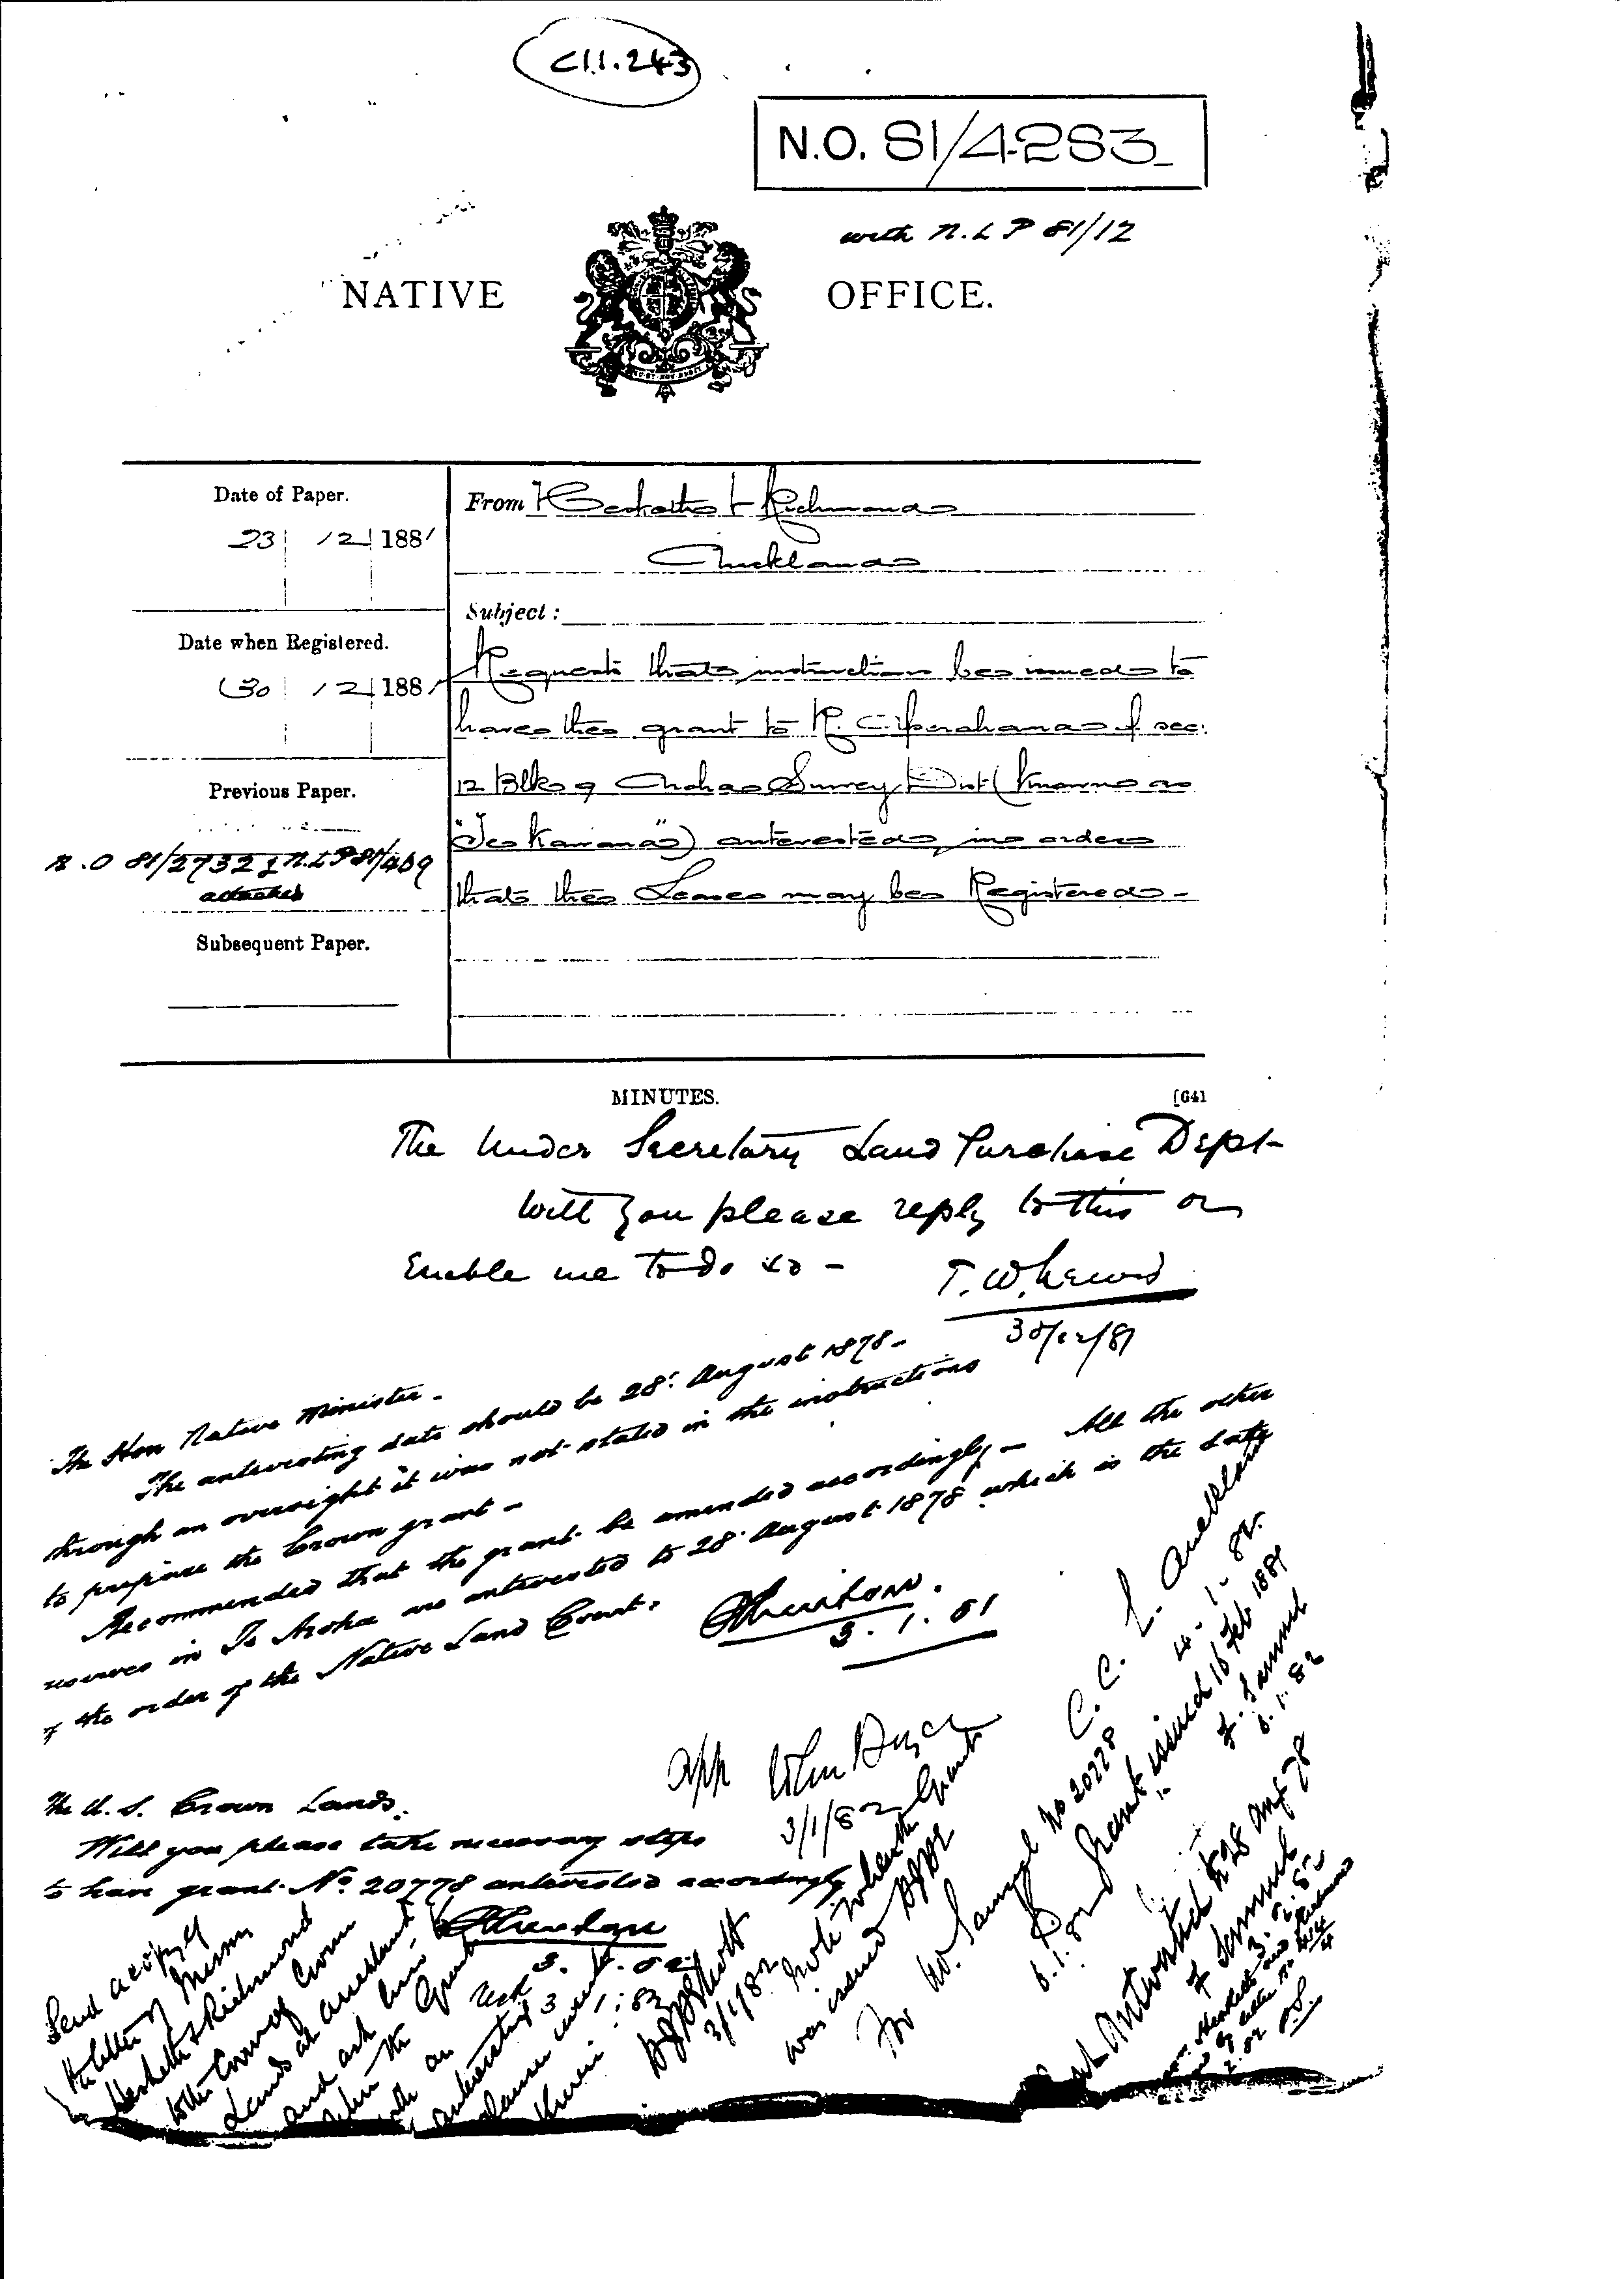 C11.243
N.O. 81/4283
with N.L.P 81/12
NATIVE OFFICE.
Date of Paper.
23 | 12 | 1881
From Hesketh & Richmond
Auckland
Subject:
Date when Registered.
30 | 12 | 1881
Requests that instructions be issued to
have the grant to R. of sec.
12 Blk 9 Aroha Survey Dist (known as
"Te Kawana") antevested in order
that the Lease may be Registered -
Previous Paper.
N.O 81/2732 & N.L.P 81/409
attached
Subsequent Paper.
MINUTES.
[641
The Under Secretary Land Purchase Dept
Will you please reply to this or
Enable me to do so -
T. W. Lewis
30/12/81
The Hon Native Minister -
The antevesting date should be 28: August 1878 -
through an oversight it was not stated in the instructions
to prepare the Crown grant -
Recommended that the grant be amended accordingly - All the other
reserves in Te Aroha are antevested to 28 August 1878 which is the date
of the order of the Native Land Court.
3. 1. 81
app John Bryce
3/1/82
The U. S. Crown Lands.
Will you please take necessary steps
to have grant No. 20778 antevested accordingly
3. 1. 82
Send a copy of
the letter of Messrs
Hesketh & Richmond
to the Commr of Crown
Lands at Auckland
and ask him
when the Grant
an
antevesting
clause
therein
3/1/82
Note whether Grant
was issued
C. C. L. Auckland
4 - 1 - 82
Mr. Samuel No 20778
Grant issued 16 Feb 1881
6.1.82
Antevested to 28 Aug 78